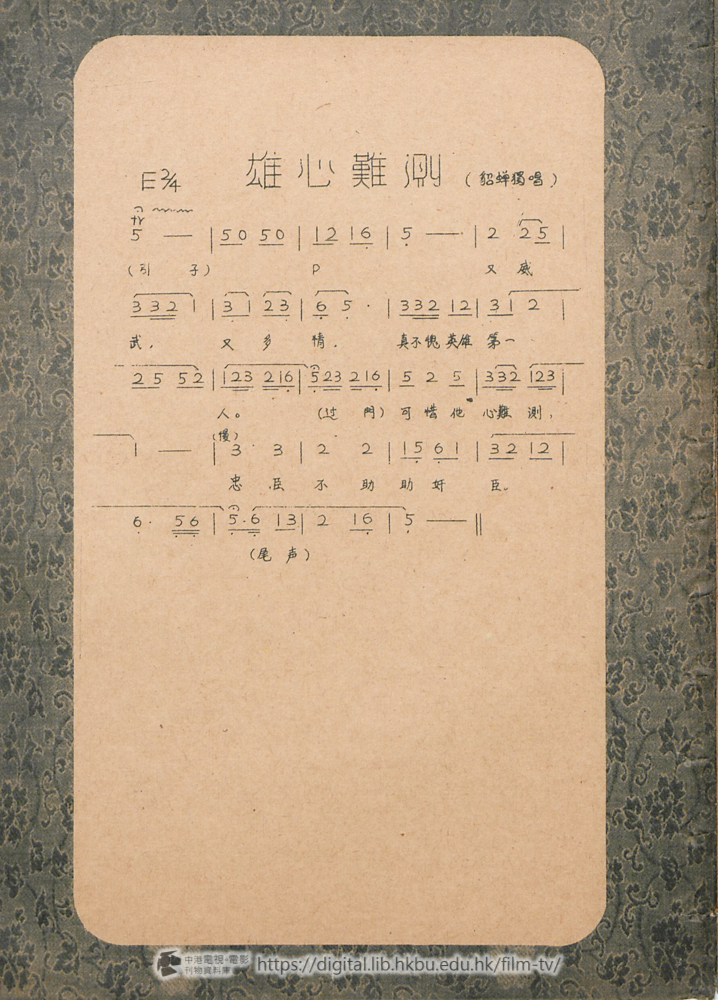 雄心難測
E 2/4
(貂蝉獨唱)
サ
5 — | 5 0 5 0 | 1 2 1 6 | 5 — | 2 2 5 |
(引 子) P 又 威
3 3 2 1 | 3 1 2 3 | 6 5 · | 3 3 2 1 2 | 3 1 2 |
武， 又 多 情． 真不愧英雄 第一
2 5 5 2 | 1 2 3 2 1 6 | 5 2 3 2 1 6 | 5 2 5 | 3 3 2 1 2 3 |
人。 (过 門) 可惜他 心難測，
(慢)
1 — | 3 3 | 2 2 | 1 5 6 1 | 3 2 1 2 |
忠 臣 不 助 助 奸 臣。
6 · 5 6 | 5 · 6 1 3 | 2 1 6 | 5 — ||
(尾 声)
中港電視·電影
刊物資料庫
https://digital.lib.hkbu.edu.hk/film-tv/